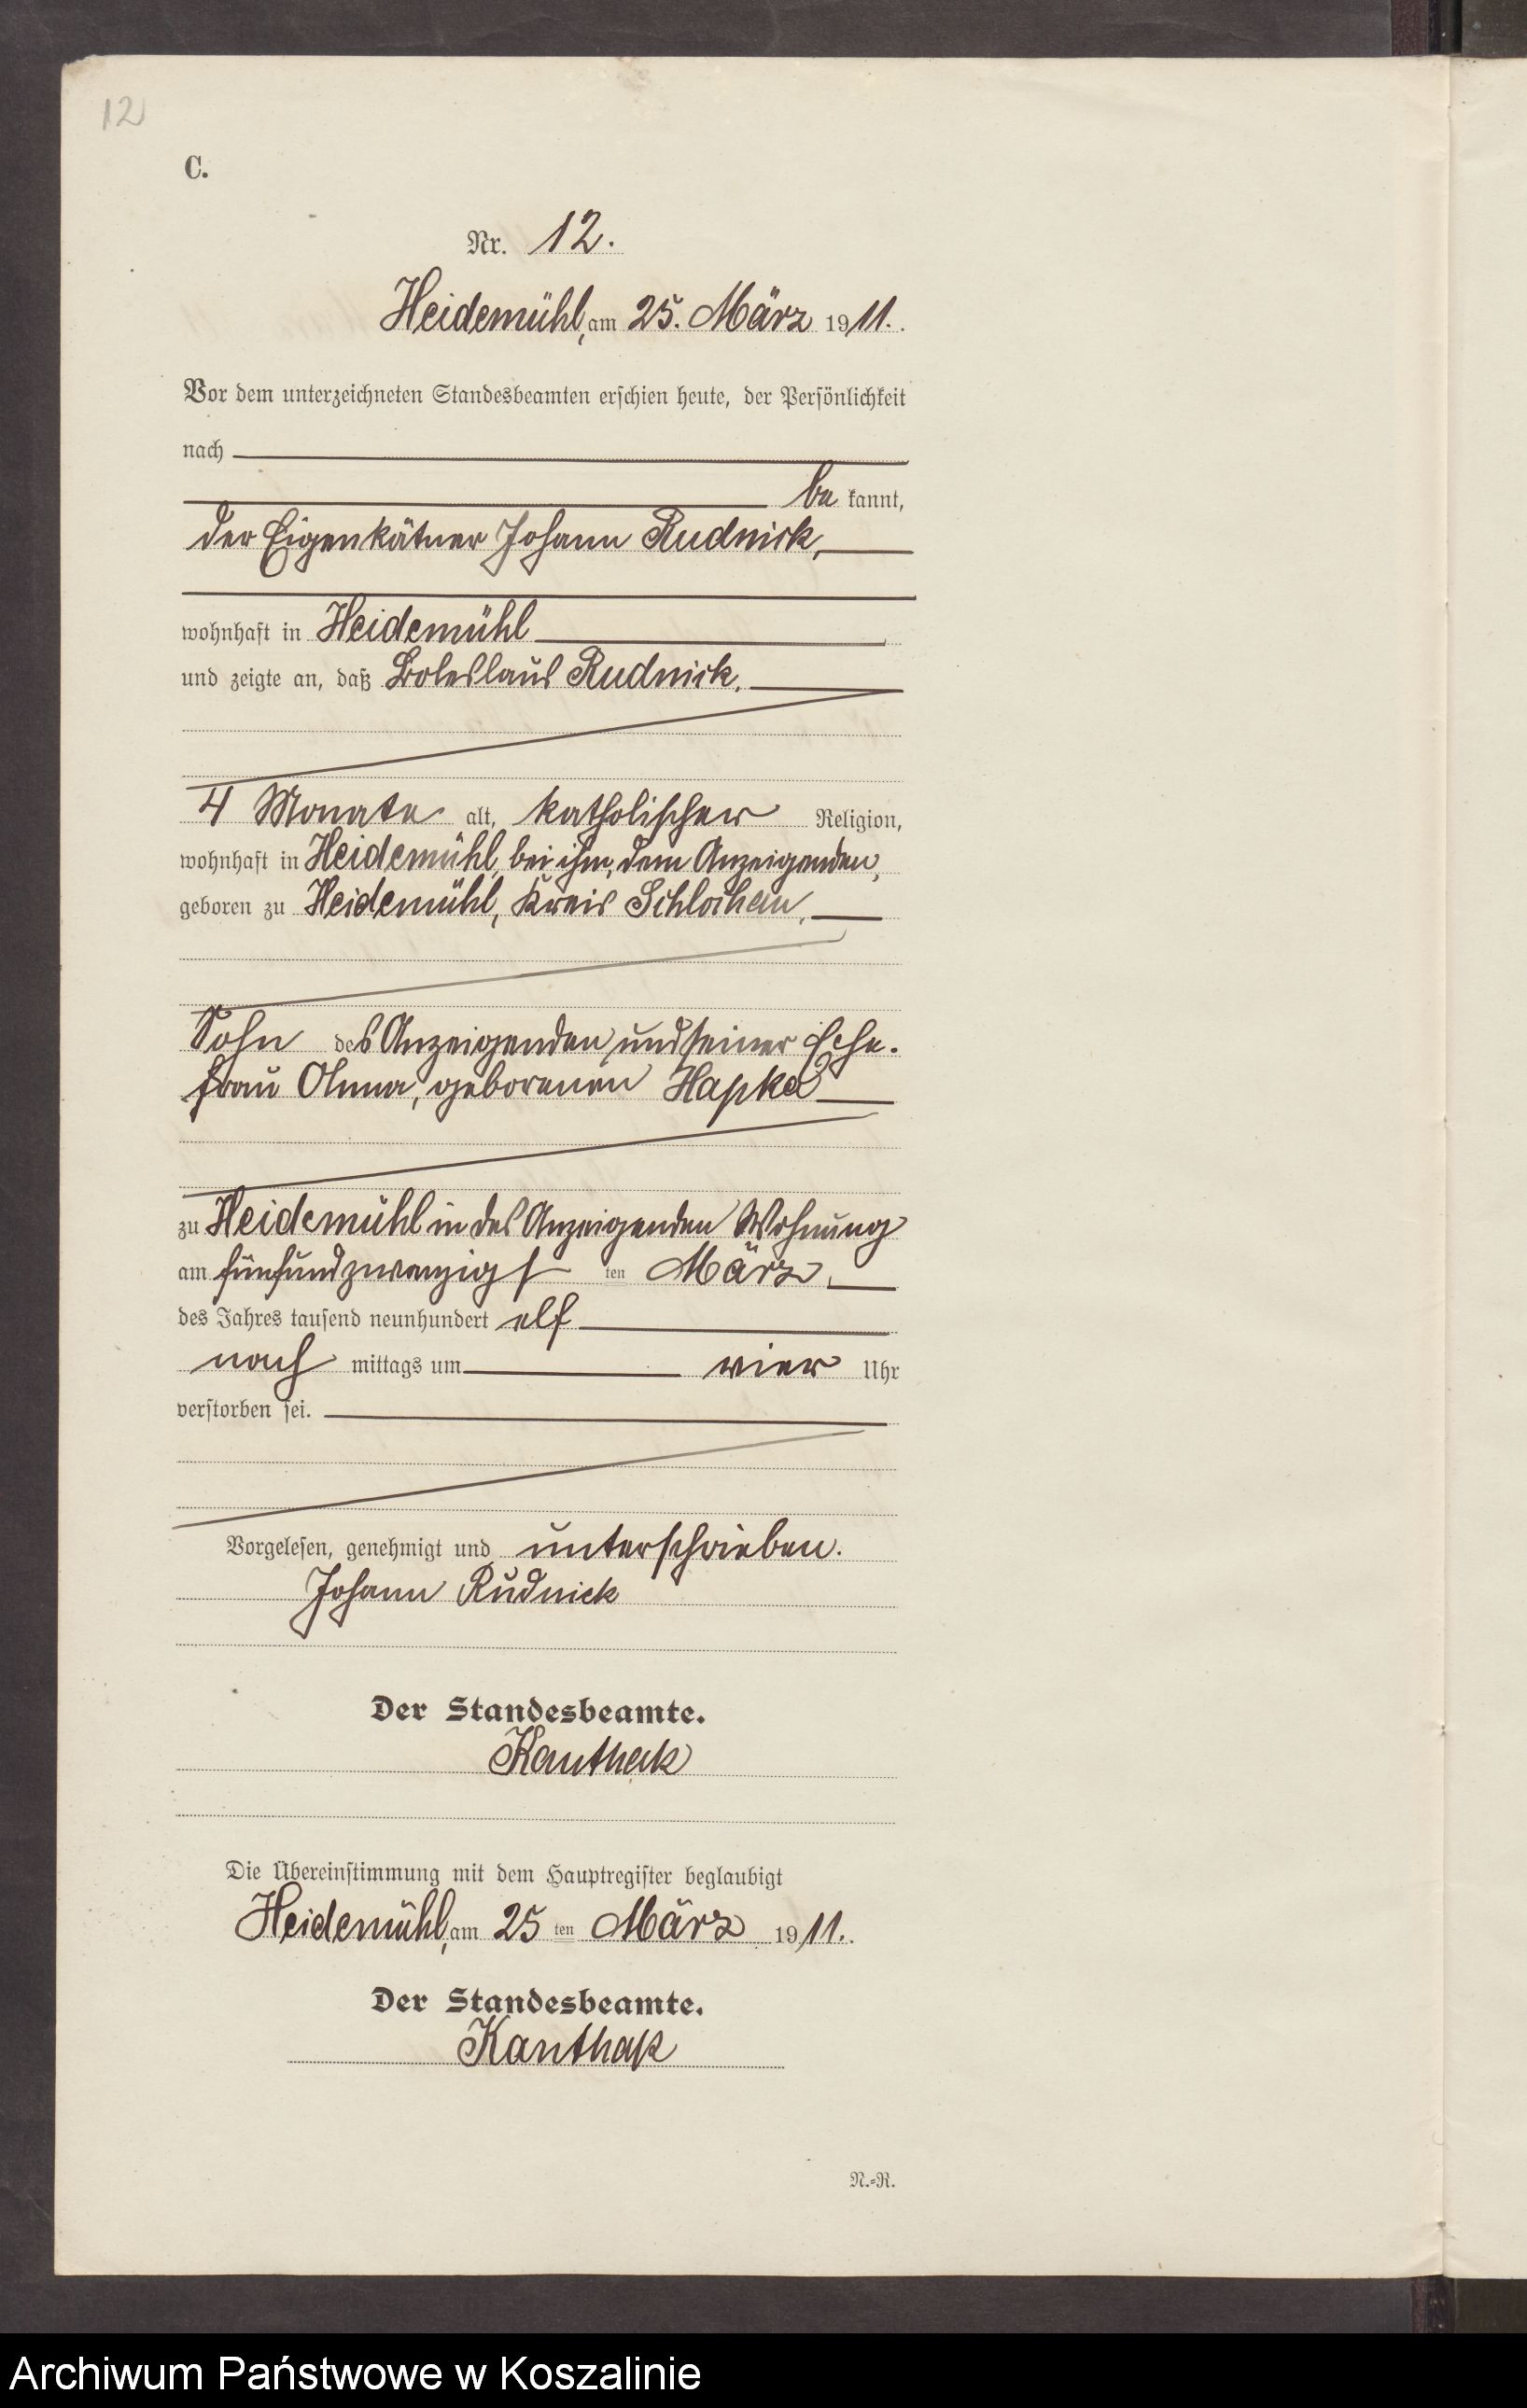 12
C.
Nr. 12.
Heidemühl, am 25. März 1911.
Vor dem unterzeichneten Standesbeamten erschien heute, der Persönlichkeit
nach
be kannt,
der Eigenkätner Johann Rudnick,
wohnhaft in Heidemühl
und zeigte an, daß Boleslaus Rudnick,
4 Monate alt, katholischer Religion,
wohnhaft in Heidemühl, bei ihm, dem Anzeigenden,
geboren zu Heidemühl, Kreis Schlochau,
Sohn des Anzeigenden und seiner Ehe-
frau Anna, geborenen Hapka
zu Heidemühl in des Anzeigenden Wohnung
am fünfundzwanzigsten März,
des Jahres tausend neunhundert elf
nach mittags um vier Uhr
verstorben sei.
Vorgelesen, genehmigt und unterschrieben.
Johann Rudnick
Der Standesbeamte.
Kanthak
Die Übereinstimmung mit dem Hauptregister beglaubigt
Heidemühl, am 25 ten März 1911.
Der Standesbeamte.
Kanthak
N.-R.
Archiwum Państwowe w Koszalinie